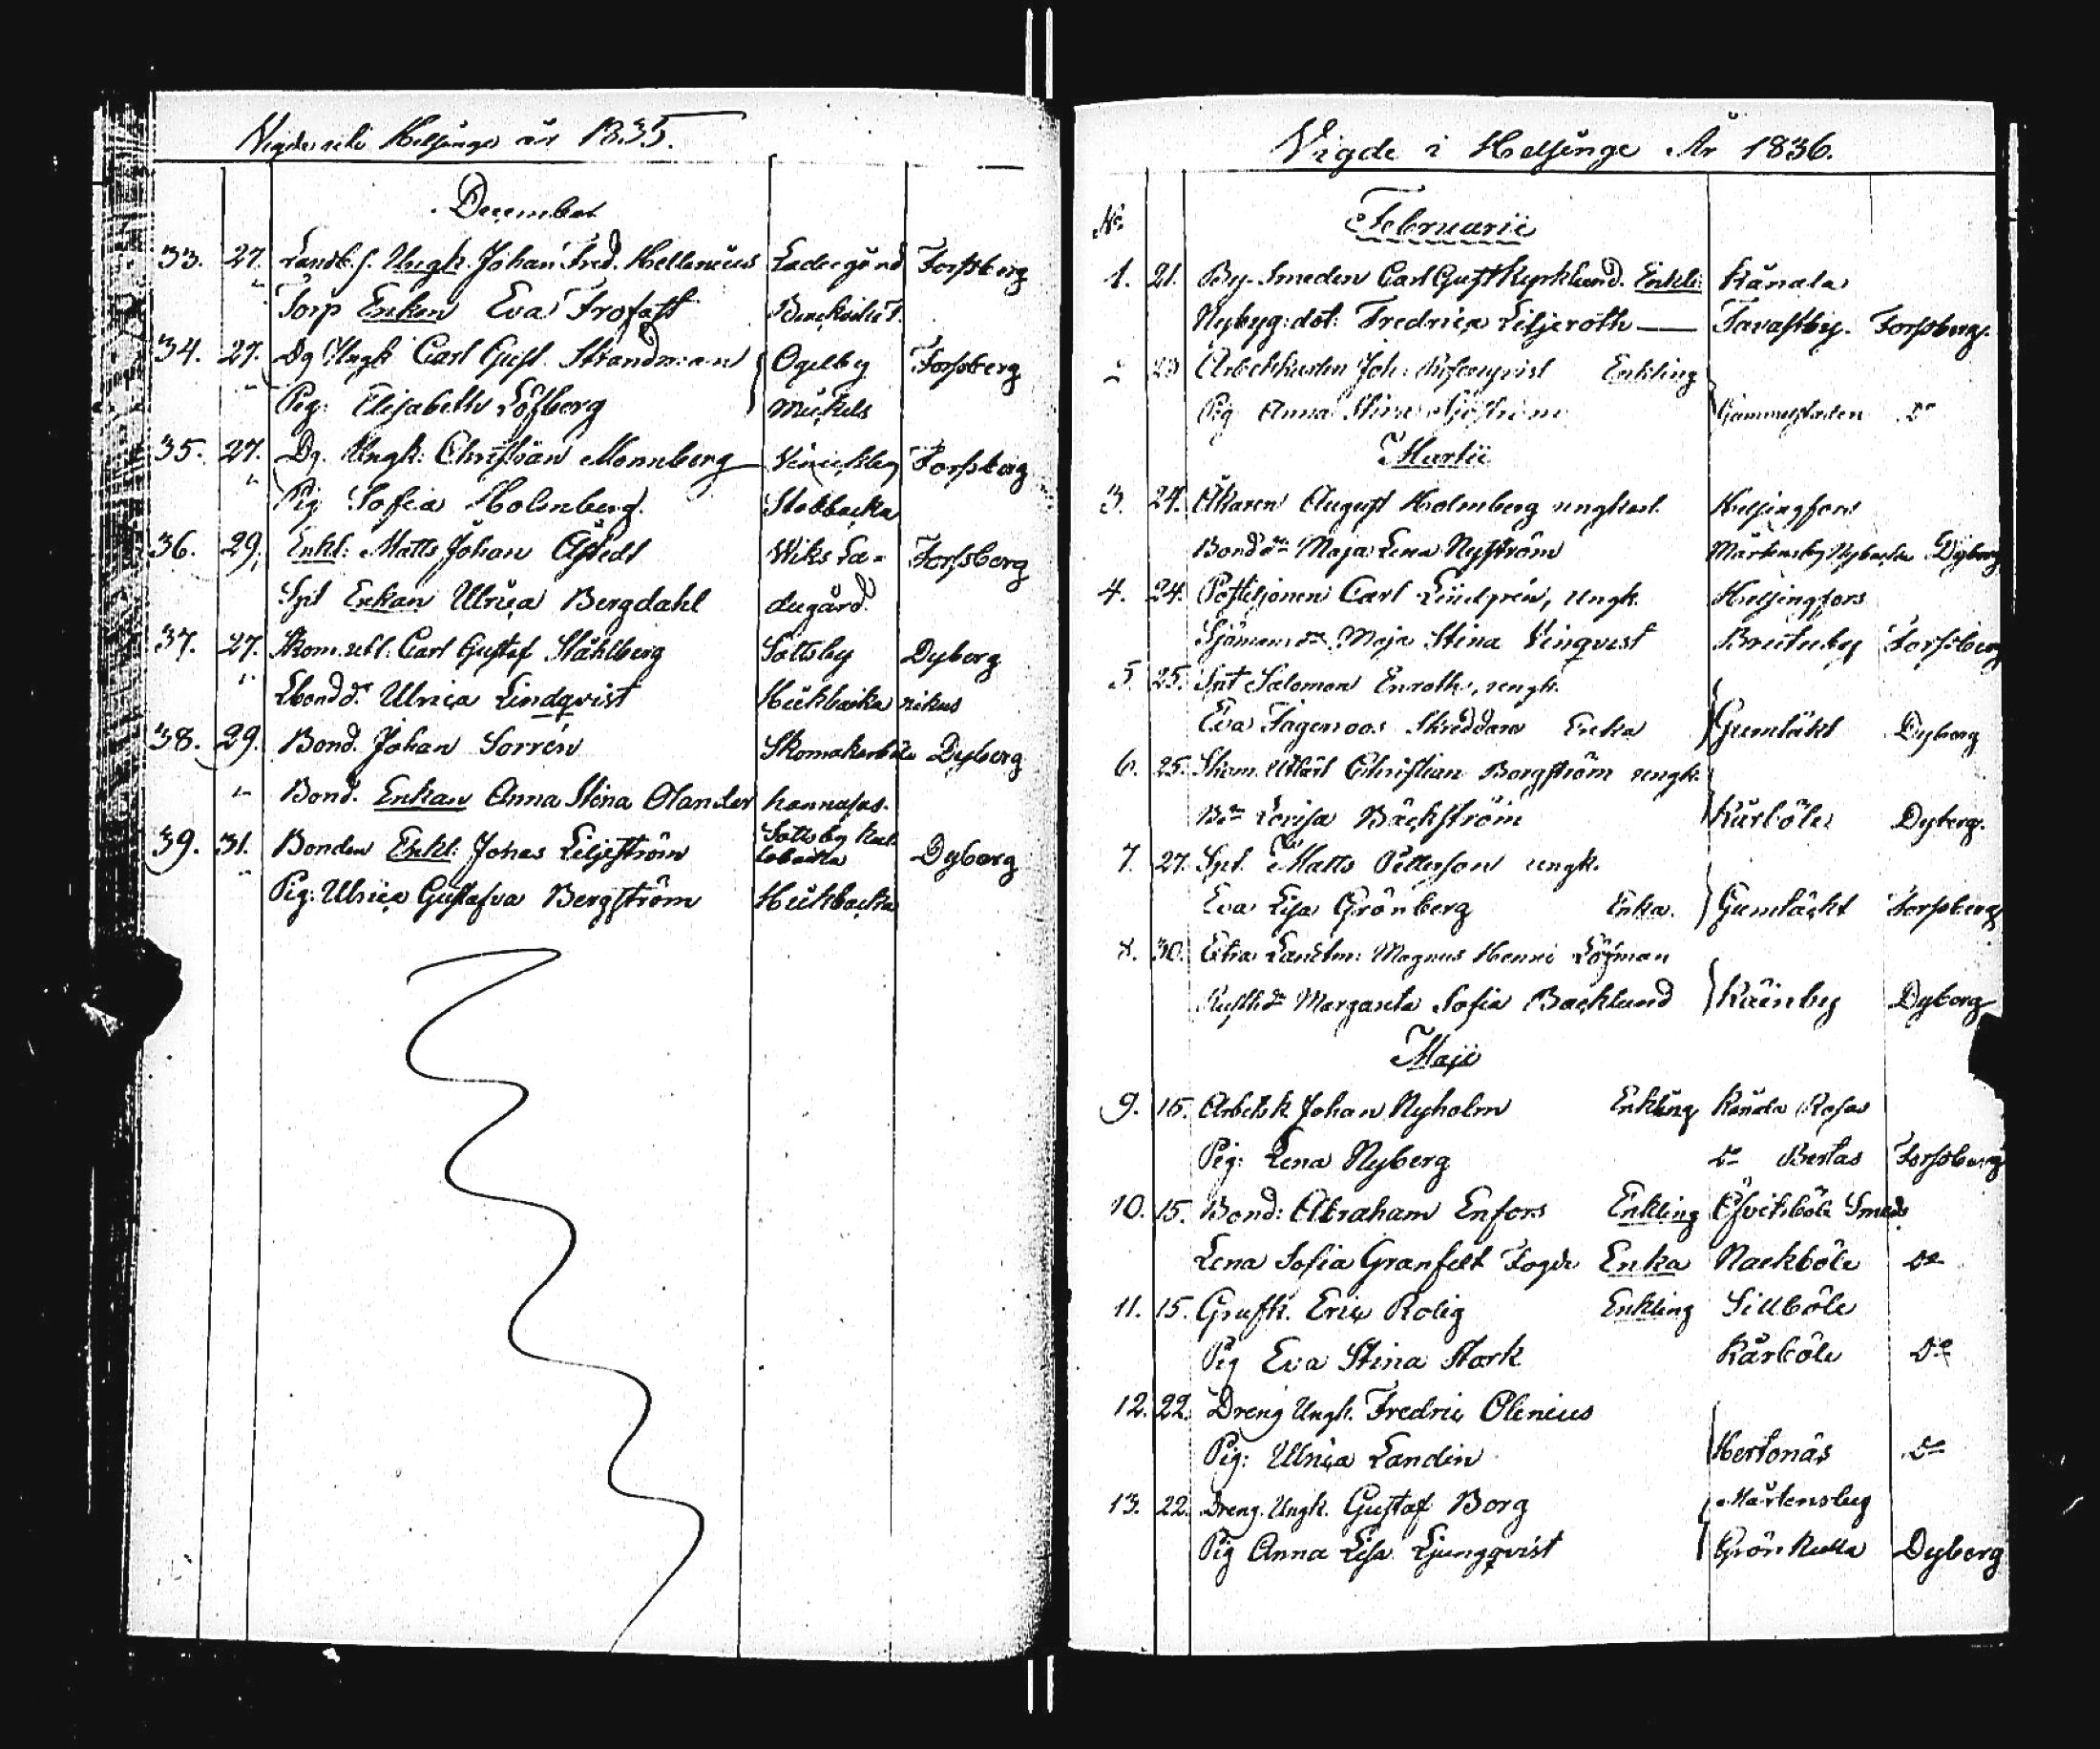 Vigde uti Helsinge år 1835.
December
33. 27. Landb. s. Ungk. Johan Fred. Hellenius Ladugård Forssberg
" Torp Enkan Eva Trofast
34. 27. Dg Ungk Carl Gust. Strandman Ogelby Forssberg
" Pig: Elisabeth Löfberg Mickels
35. 27. Dg. Ungk: Christian Monnberg Forssberg
" Pig Sofia Holmberg. Stabbacka
36. 29. Enkl: Matts Johan Åstedt Wiks La- Forssberg
Spt Enkan Ulrica Bergdahl dugård
37. 27. Skom. utl. Carl Gustaf Ståhlberg Sottsby Dyberg
" Ulrica Lindqvist
38. 29. Bond. Johan Sorrén Skomakarböle Dyberg
" Bond. Enkan Anna Stina Olander hannusas.
39. 31. Bonden Enkl: Johas Liljeström Sottsby Dyberg
" Pig: Ulrica Gustafva Bergström
Vigde i Helsinge År 1836.
No Februarii
1. 21. By-Smeden Carl Gust Kyrklund. Enkli: Kånala
Nybyg: dot: Fredrica Liljeroth — Tavastby. Forssberg.
2 23 Arbetskarlen Joh: Enkling
Pig Anna Stina Sjöström Gammelstaden Do
Martii
3. 24. Åkaren August Holmberg ungkarl. Helsingfors
Bond dr Maja Lena Nyström Mårtensby Nybacka Dyberg
4. 24. Postiljonen Carl Lindgrén, ungk. Helsingfors
Sjöman dr Maja Stina Vinqvist Forssberg
5. 25. Spt Salomon Enroth, ungk.
Eva Fagerroos Skreddare Enka Gumtäkt Dyberg
6. 25. Skom. Utlärd Christian Borgström ungk.
Bdr Lovisa Bäckström Kårböle Dyberg.
7. 27. Spt. Matts Petterson ungk.
Eva Lisa Grönberg Enka. Gumtäckt Forssberg
8. 30. Extra Länsm: Magnus Henric Löfman
Rusth dr Margareta Sofia Backlund Dyberg
Maji
9. 15. Arbetsk Johan Nyholm Enkling Kånala Rosas
Pig: Lena Nyberg Do Bertas Forssberg
10. 15. Bond: Abraham Enfors Enkling Öfvitsböle Smeds
Lena Sofia Granfelt Fogde Enka Nackböle Do
11. 15. Grufk. Eric Rolig Enkling Sillböle
Pig Eva Stina Stark Kårböle Do
12. 22. Dreng Ungk. Fredric Olenius
Pig: Ulrica Landin Hertonäs Do
13. 22. Dreng. Ungk. Gustaf Borg Mårtensby
Pig Anna Lisa Ljungqvist Grönkulla Dyberg